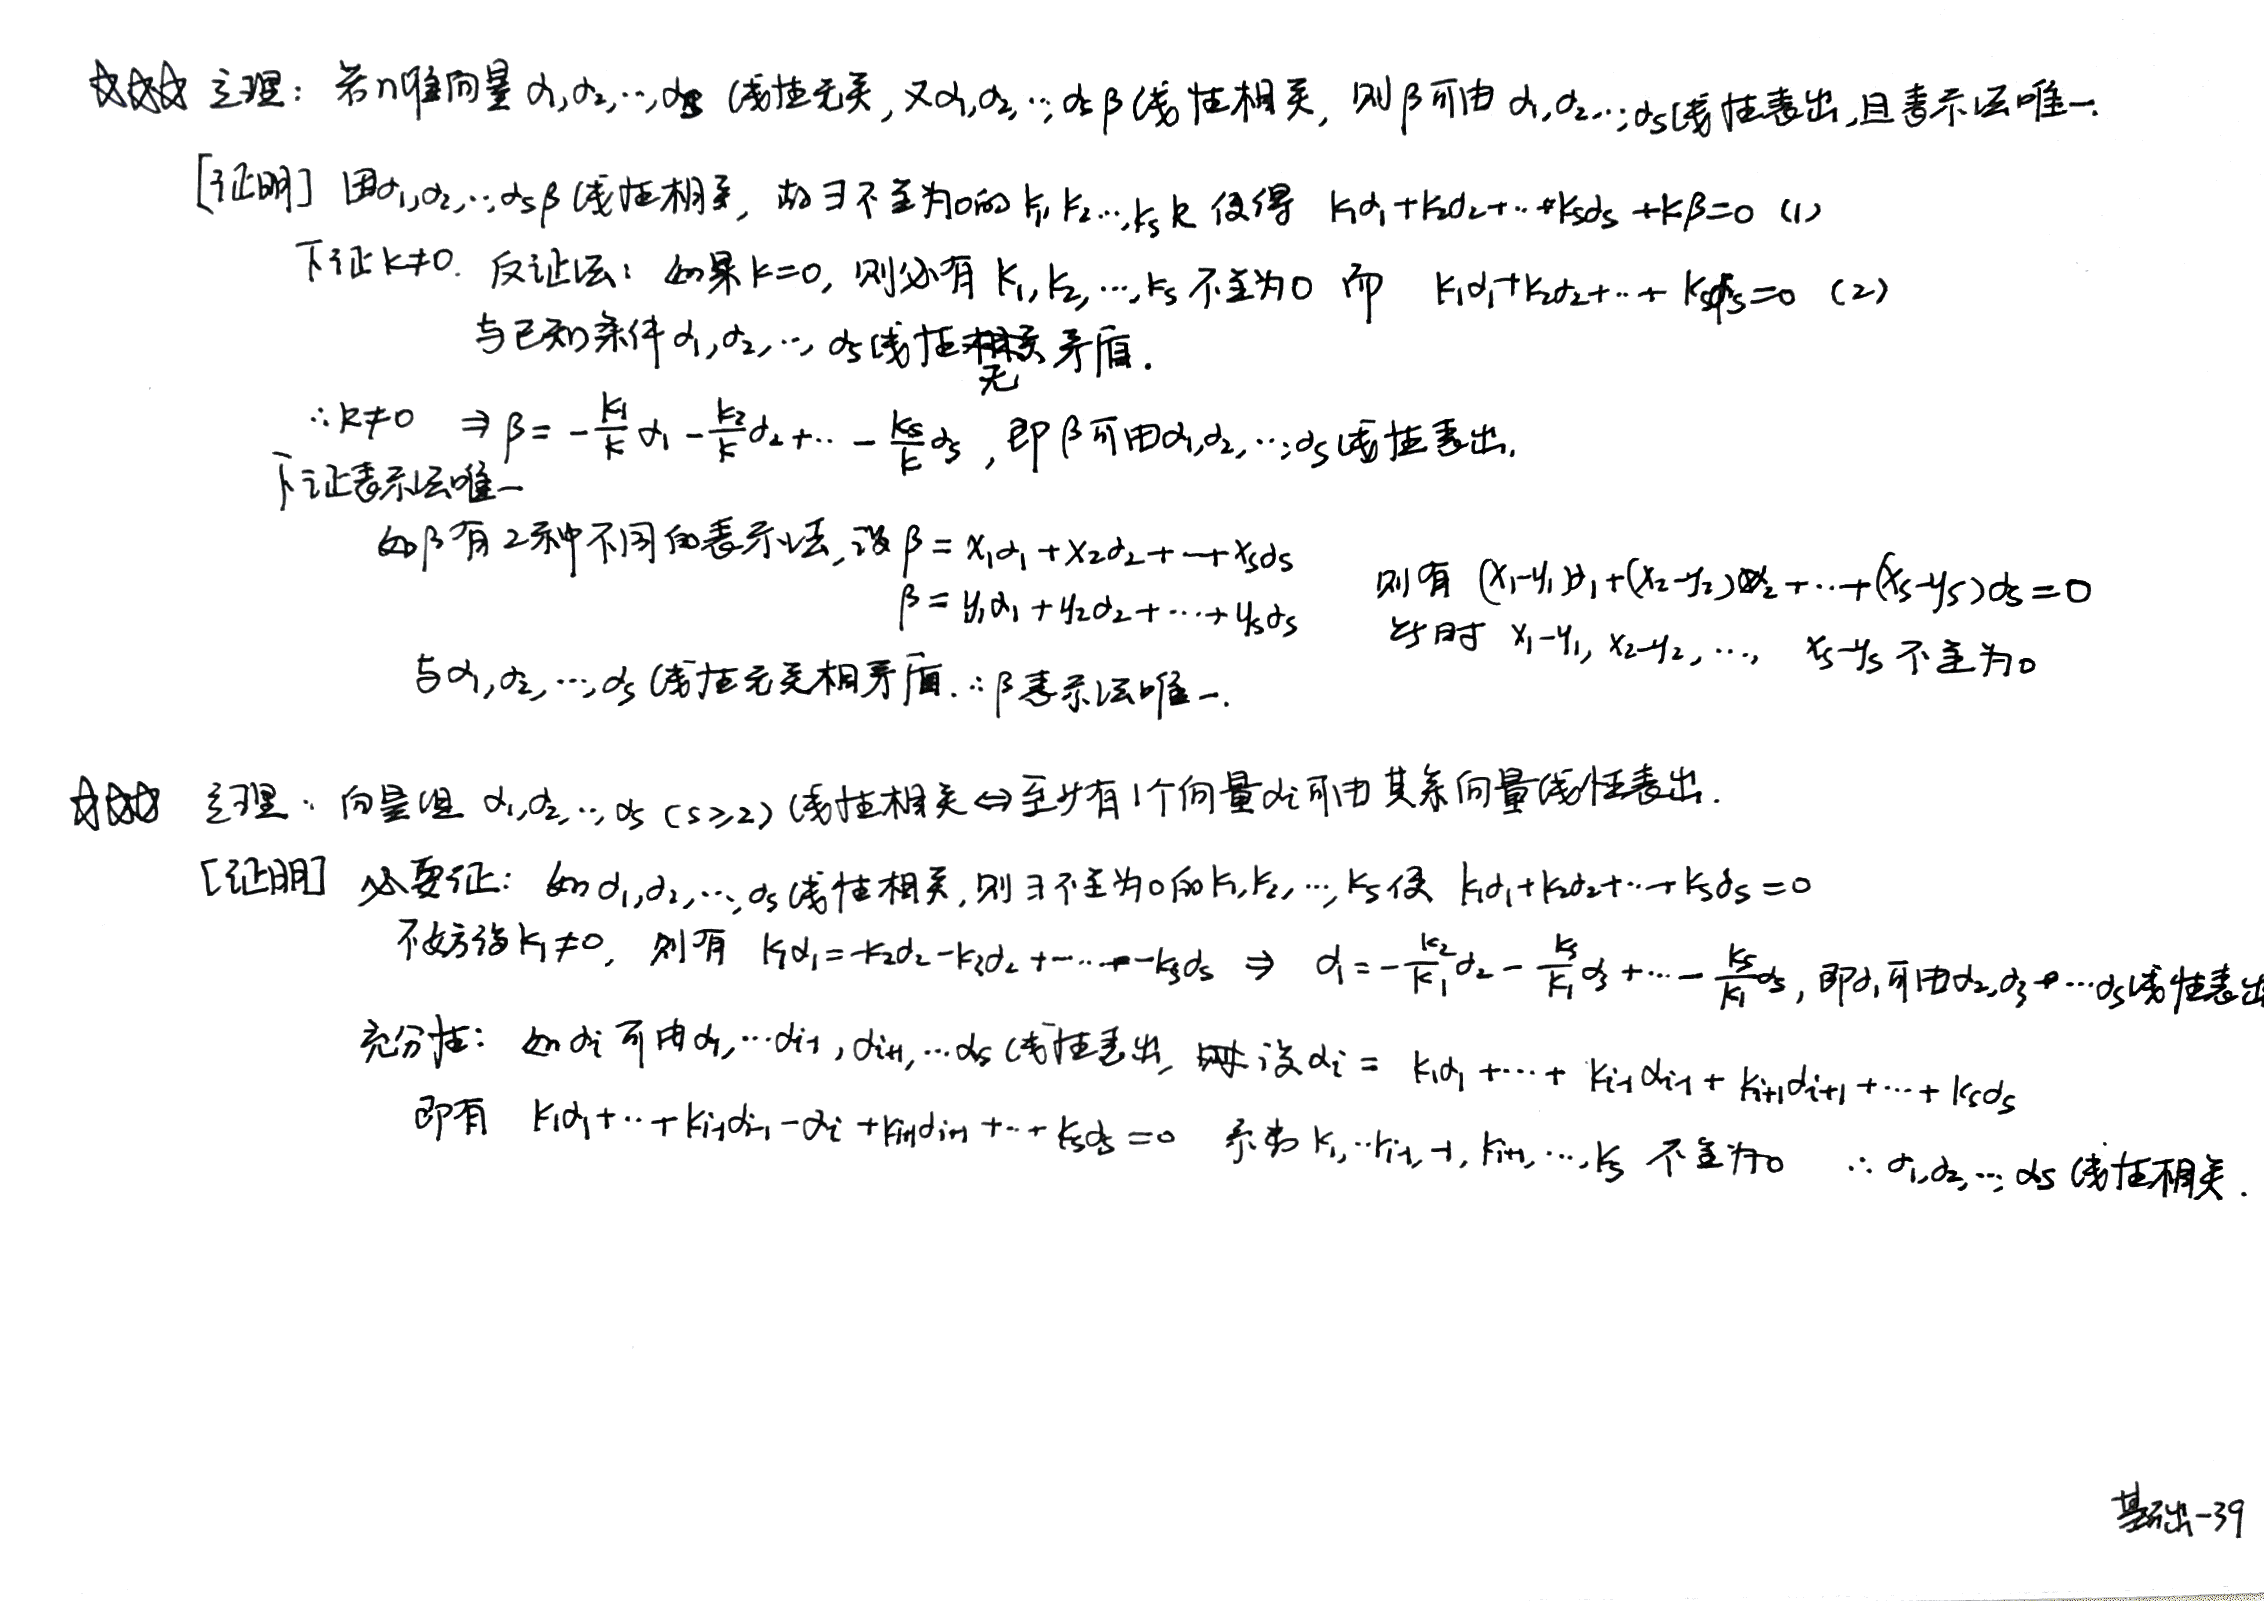 ☆☆☆ 定理：若n维向量 α₁,α₂,…,αs 线性无关,又α₁,α₂,…,αs β线性相关, 则β可由 α₁,α₂…,αs线性表出,且表示法唯一.
[证明] 因α₁,α₂,…,αs β线性相关, 故∃不全为0的 k₁,k₂…,ks k 使得 k₁α₁+k₂α₂+…+ksαs+kβ=0 (1)
下证k≠0. 反证法: 如果k=0, 则必有 k₁,k₂,…,ks 不全为0 而 k₁α₁+k₂α₂+…+ksαs=0 (2)
与已知条件α₁,α₂,…,αs线性无关矛盾.
∴k≠0 ⇒ β=-k₁/k α₁-k₂/k α₂+…-ks/k αs, 即β可由α₁,α₂,…,αs线性表出.
下证表示法唯一
如β有2种不同的表示法,设β=x₁α₁+x₂α₂+…+xsαs
β=y₁α₁+y₂α₂+…+ysαs
则有 (x₁-y₁)α₁+(x₂-y₂)α₂+…+(xs-ys)αs=0
此时 x₁-y₁, x₂-y₂, …, xs-ys 不全为0
与α₁,α₂,…,αs线性无关相矛盾.∴β表示法唯一.
☆☆☆ 定理: 向量组 α₁,α₂,…,αs (s≥2) 线性相关⇔至少有1个向量αi可由其余向量线性表出.
[证明] 必要征: 如α₁,α₂,…,αs线性相关,则∃不全为0的k₁,k₂,…,ks使 k₁α₁+k₂α₂+…+ksαs=0
不妨设k₁≠0, 则有 k₁α₁=-k₂α₂-k₃α₂+…-ksαs ⇒ α₁=-k₂/k₁ α₂-k₃/k₁ α₃+…-ks/k₁ αs, 即α₁可由α₂,α₃…αs线性表出
充分性: 如αi可由α₁,…αi-1,αi+1,…αs线性表出, 设αi= k₁α₁+…+ki-1αi-1+ki+1αi+1+…+ksαs
即有 k₁α₁+…+ki-1αi-1-αi+ki+1αi+1+…+ksαs=0 系数k₁,…ki-1,-1,ki+1,…,ks 不全为0 ∴α₁,α₂,…,αs线性相关.
基础-39